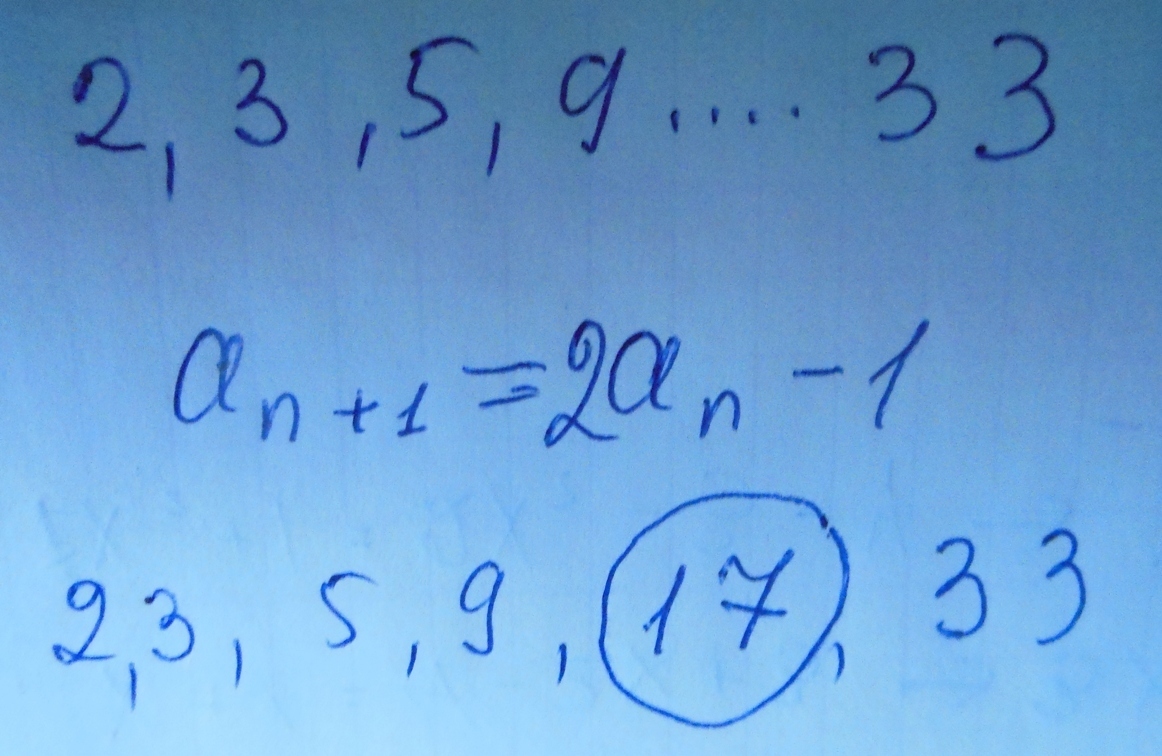 2, 3, 5, 9 .... 33
aₙ₊₁ = 2aₙ - 1
2, 3, 5, 9, 17, 33